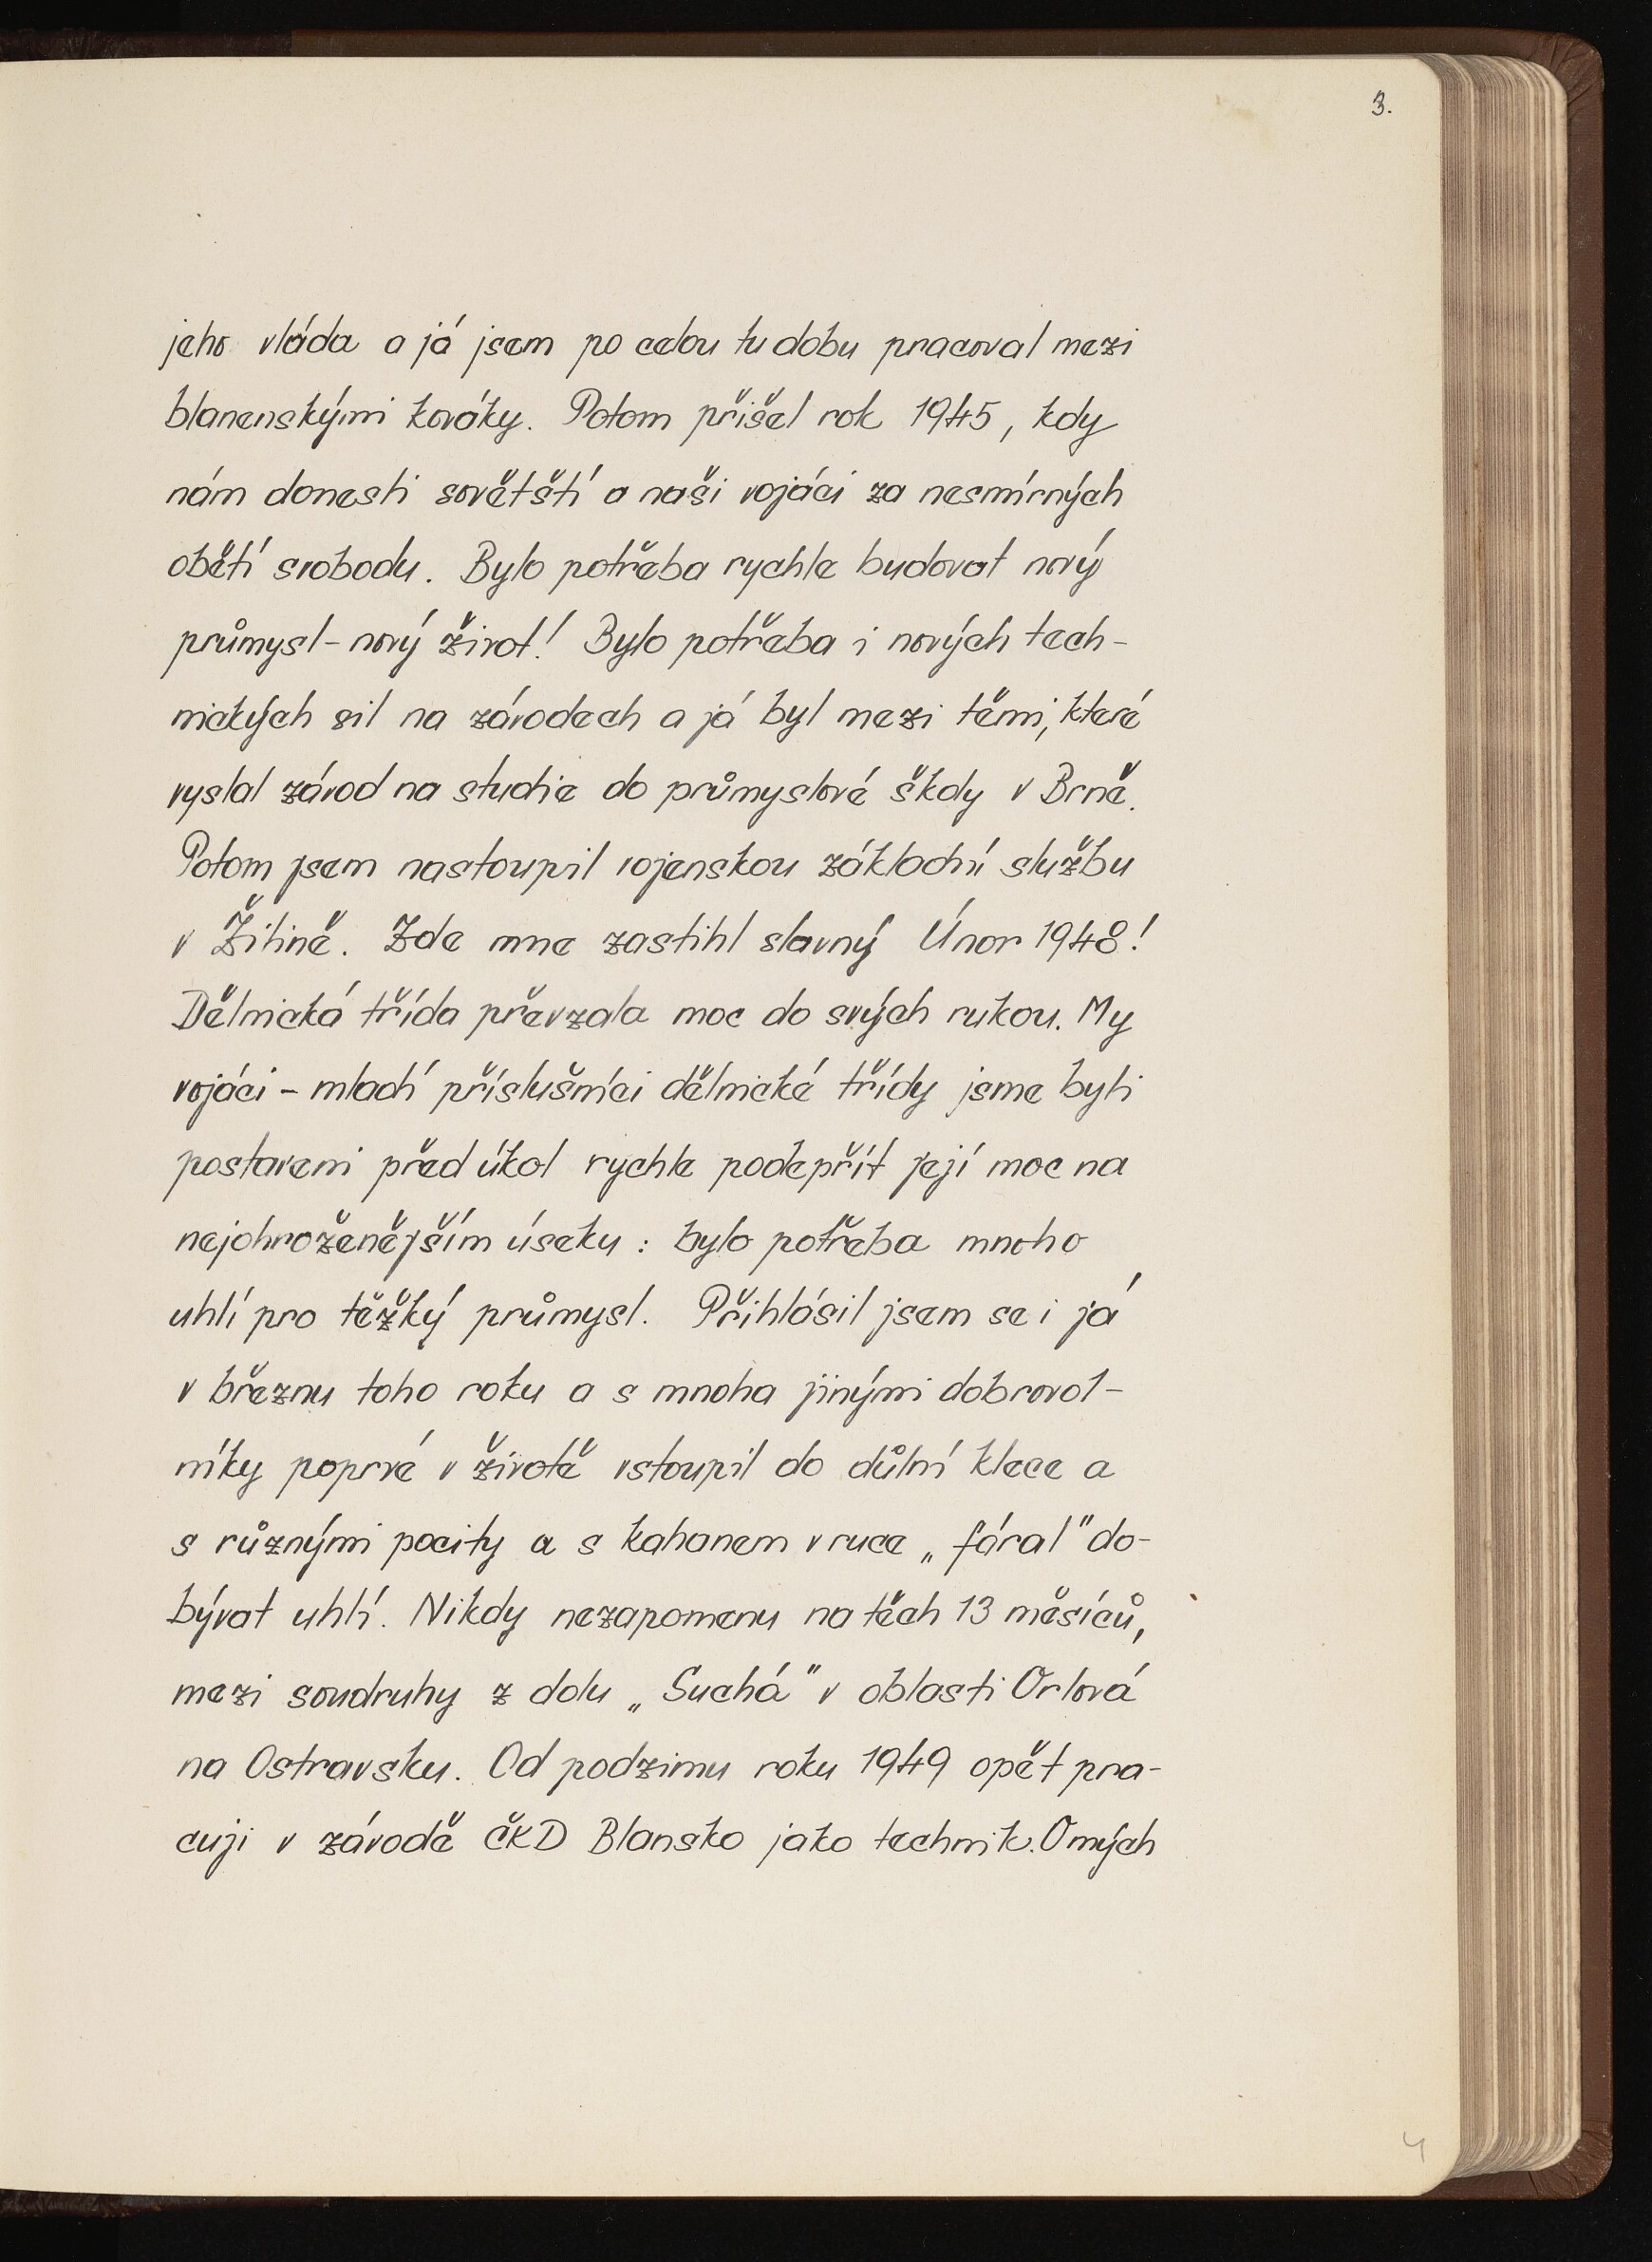 3.
jeho vláda a já jsem po celou tu dobu pracoval mezi
blanenskými kováky. Potom přišel rok 1945, kdy
nám donesli sovětští a naši vojáci za nesmírných
obětí svobodu. Bylo potřeba rychle budovat nový
průmysl - nový život! Bylo potřeba i nových tech-
nických sil na závodech a já byl mezi těmi, které
vyslal závod na studie do průmyslové školy v Brně.
Potom jsem nastoupil vojenskou základní službu
v Žilině. Zde mne zastihl slavný Únor 1948!
Dělnická třída převzala moc do svých rukou. My
vojáci - mladí příslušníci dělnické třídy jsme byli
postaveni před úkol rychle podepřít její moc na
nejohroženějším úseku : bylo potřeba mnoho
uhlí pro těžký průmysl. Přihlásil jsem se i já
v březnu toho roku a s mnoha jinými dobrovol-
níky poprvé v životě vstoupil do důlní klece a
s různými pocity a s kahanem v ruce „fáral" do-
bývat uhlí. Nikdy nezapomenu na těch 13 měsíců,
mezi soudruhy z dolu „Suchá" v oblasti Orlová
na Ostravsku. Od podzimu roku 1949 opět pra-
cuji v závodě ČKD Blansko jako technik. O mých
4